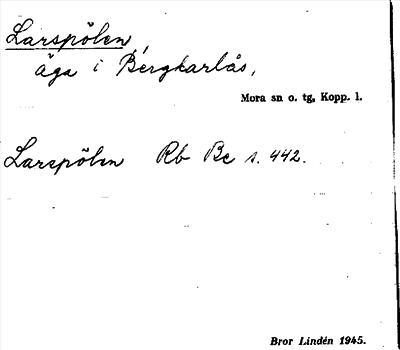 Larspölen,
äga i Bergkarlås,
Mora sn o. tg, Kopp. l.
Larspölen Rb Bc s. 442.
Bror Lindén 1945.